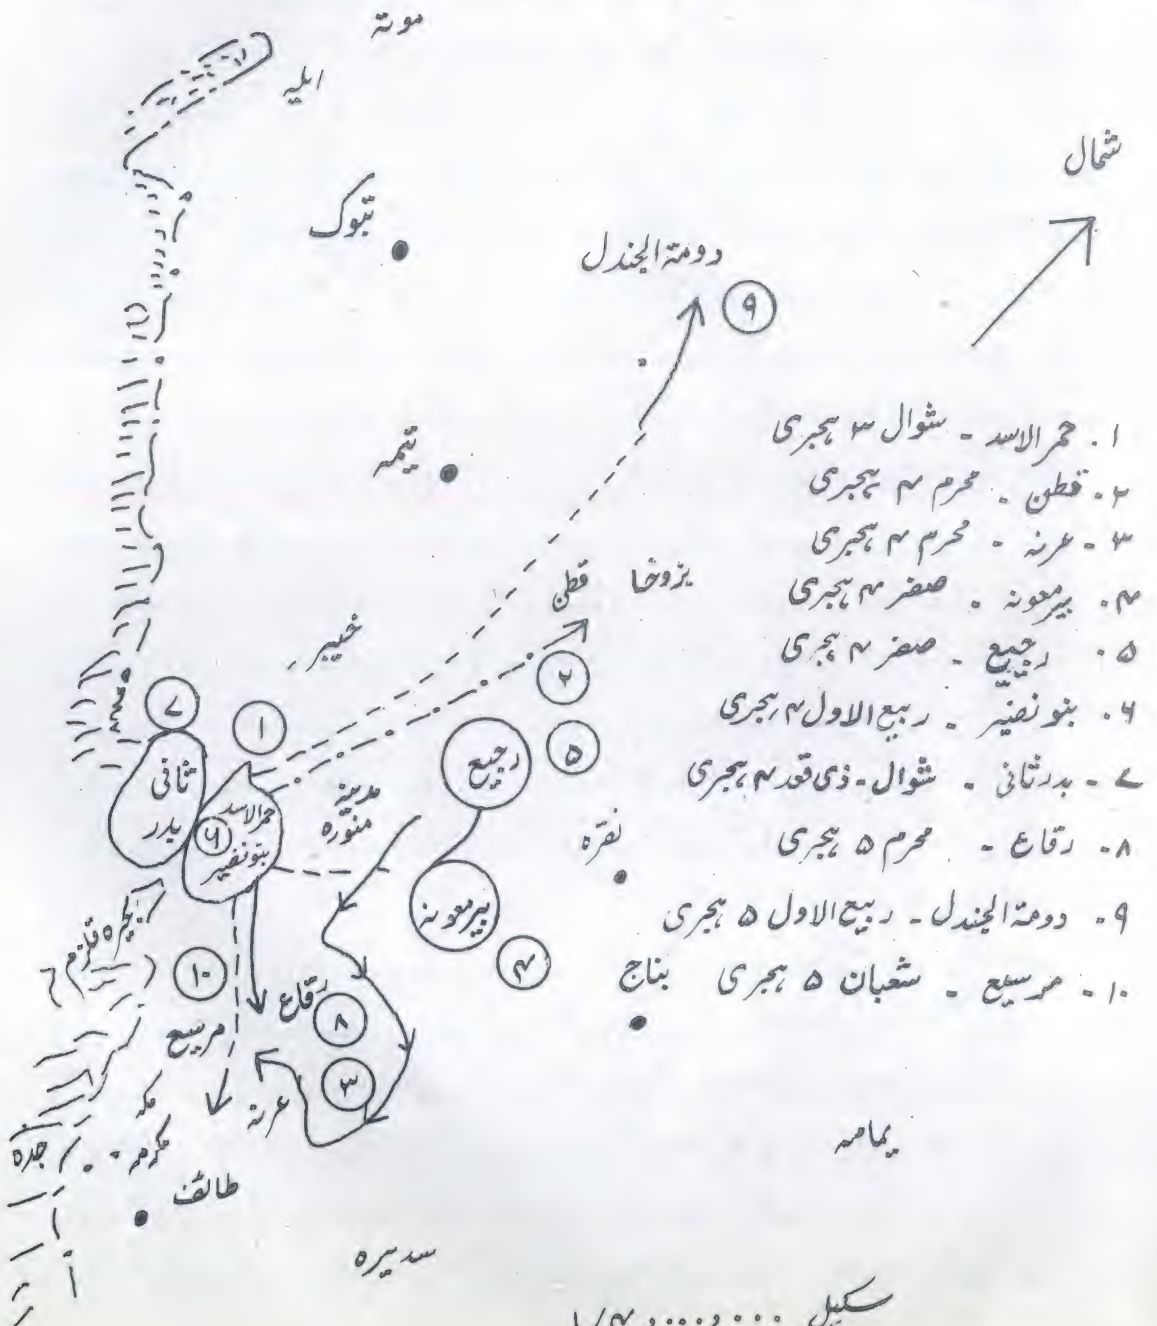 موتہ
ایلہ
شمال
تبوک
دومۃ الجندل
۹
۱. حمر الاسد - شوال ۳ ہجری
۲. قطن - محرم ۴ ہجری
۳ - عرنہ - محرم ۴ ہجری
۴. بیرمعونہ - صفر ۴ ہجری
۵. رجیع - صفر ۴ ہجری
۶. بنو نضیر - ربیع الاول ۴ ہجری
۷ - بدر ثانی - شوال - ذی قعد ۴ ہجری
۸. رقاع - محرم ۵ ہجری
۹. دومۃ الجندل - ربیع الاول ۵ ہجری
۱۰. مرسیع - شعبان ۵ ہجری
تیمہ
بزوخا
قطن
خیبر
۲
۷
۱
۵
رجیع
ثانی
بدر
حمر الاسد
۶
بنو نضیر
مدینہ
منورہ
نقرہ
بیرمعونہ
۴
بحیرہ قلزم
۱۰
رقاع
۸
بناج
مرسیع
۳
عرنہ
مکہ
مکرمہ
جدہ
یمامہ
طائف
سدیرہ
سکیل ۱/۴۰۰۰۰۰۰